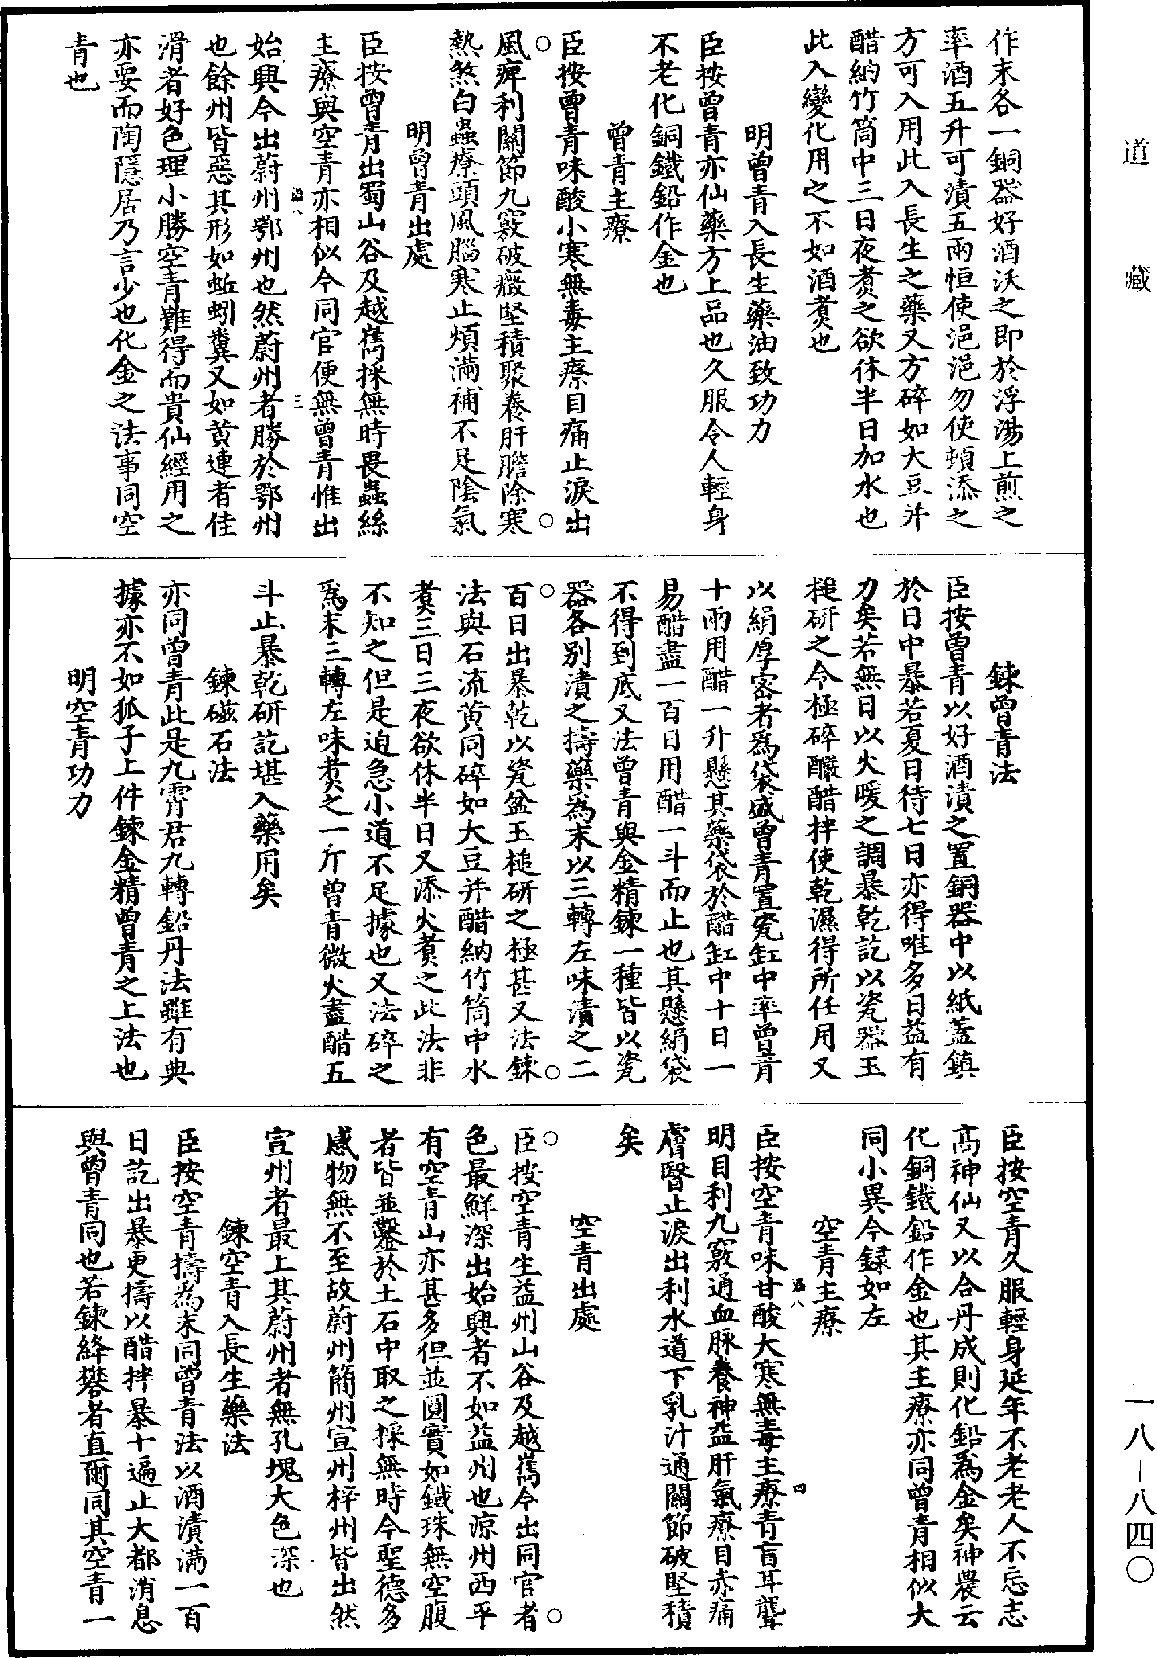 道藏
作末各一銅器好酒沃之即於浮湯上煎之
率酒五升可漬五兩恒使浥浥勿使頓添之
方可入用此入長生之藥又方碎如大豆并
醋納竹筒中三日夜煮之欲休半日加水也
此入變化用之不如酒煮也
明曾青入長生藥油致功力
臣按曾青亦仙藥方上品也久服令人輕身
不老化銅鐵鉛作金也
曾青主療
臣按曾青味酸小寒無毒主療目痛止淚出
風痺利關節九竅破癥堅積聚養肝膽除寒
熱煞白蟲療頭風腦寒止煩滿補不足陰氣
明曾青出處
臣按曾青出蜀山谷及越嶲採無時畏蟲絲
主療與空青亦相似今同官便無曾青惟出
始興今出蔚州鄂州也然蔚州者勝於鄂州
也餘州皆惡其形如蚯蚓糞又如黄連者佳
滑者好色理小勝空青難得而貴仙經用之
亦要而陶隱居乃言少也化金之法事同空
青也
鍊曾青法
臣按曾青以好酒漬之置銅器中以紙蓋鎮
於日中暴若夏日待七日亦得唯多日益有
力矣若無日以火暖之調暴乾訖以瓷器玉
搥研之令極碎釅醋拌使乾濕得所任用又
以絹厚密者爲袋盛曾青置瓷缸中率曾青
十兩用醋一升懸其藥袋於醋缸中十日一
易醋盡一百日用醋一斗而止也其懸絹袋
不得到底又法曾青與金精鍊一種皆以瓷
器各别漬之擣藥爲末以三轉左味漬之二
百日出暴乾以瓷盆玉槌研之極甚又法鍊
法與石流黄同碎如大豆并醋納竹筒中水
煮三日三夜欲休半日又添火煮之此法非
不知之但是迫急小道不足據也又法碎之
爲末三轉左味煮之一斤曾青微火盡醋五
斗止暴乾研訖堪入藥用矣
鍊磁石法
亦同曾青此是九霄君九轉鉛丹法雖有典
據亦不如狐子上件鍊金精曾青之上法也
明空青功力
臣按空青久服輕身延年不老老人不忘志
高神仙又以合丹成則化鉛爲金矣神農云
化銅鐵鉛作金也其主療亦同曾青相似大
同小異今録如左
空青主療
臣按空青味甘酸大寒無毒主療青盲耳聾
明目利九竅通血脉養神益肝氣療目赤痛
膚翳止淚出利水道下乳汁通關節破堅積
矣
空青出處
臣按空青生益州山谷及越嶲今出同官者
色最鮮深出始興者不如益州也涼州西平
有空青山亦甚多但並圓實如鐵珠無空腹
者皆並鑿於土石中取之採無時今聖德多
感物無不至故蔚州簡州宣州梓州皆出然
宣州者最上其蔚州者無孔塊大色深也
鍊空青入長生藥法
臣按空青擣為末同曾青法以酒漬满一百
日訖出暴更擣以醋拌暴十遍止大都消息
與曾青同也若鍊絳礬者直爾同其空青一
一八—八四〇